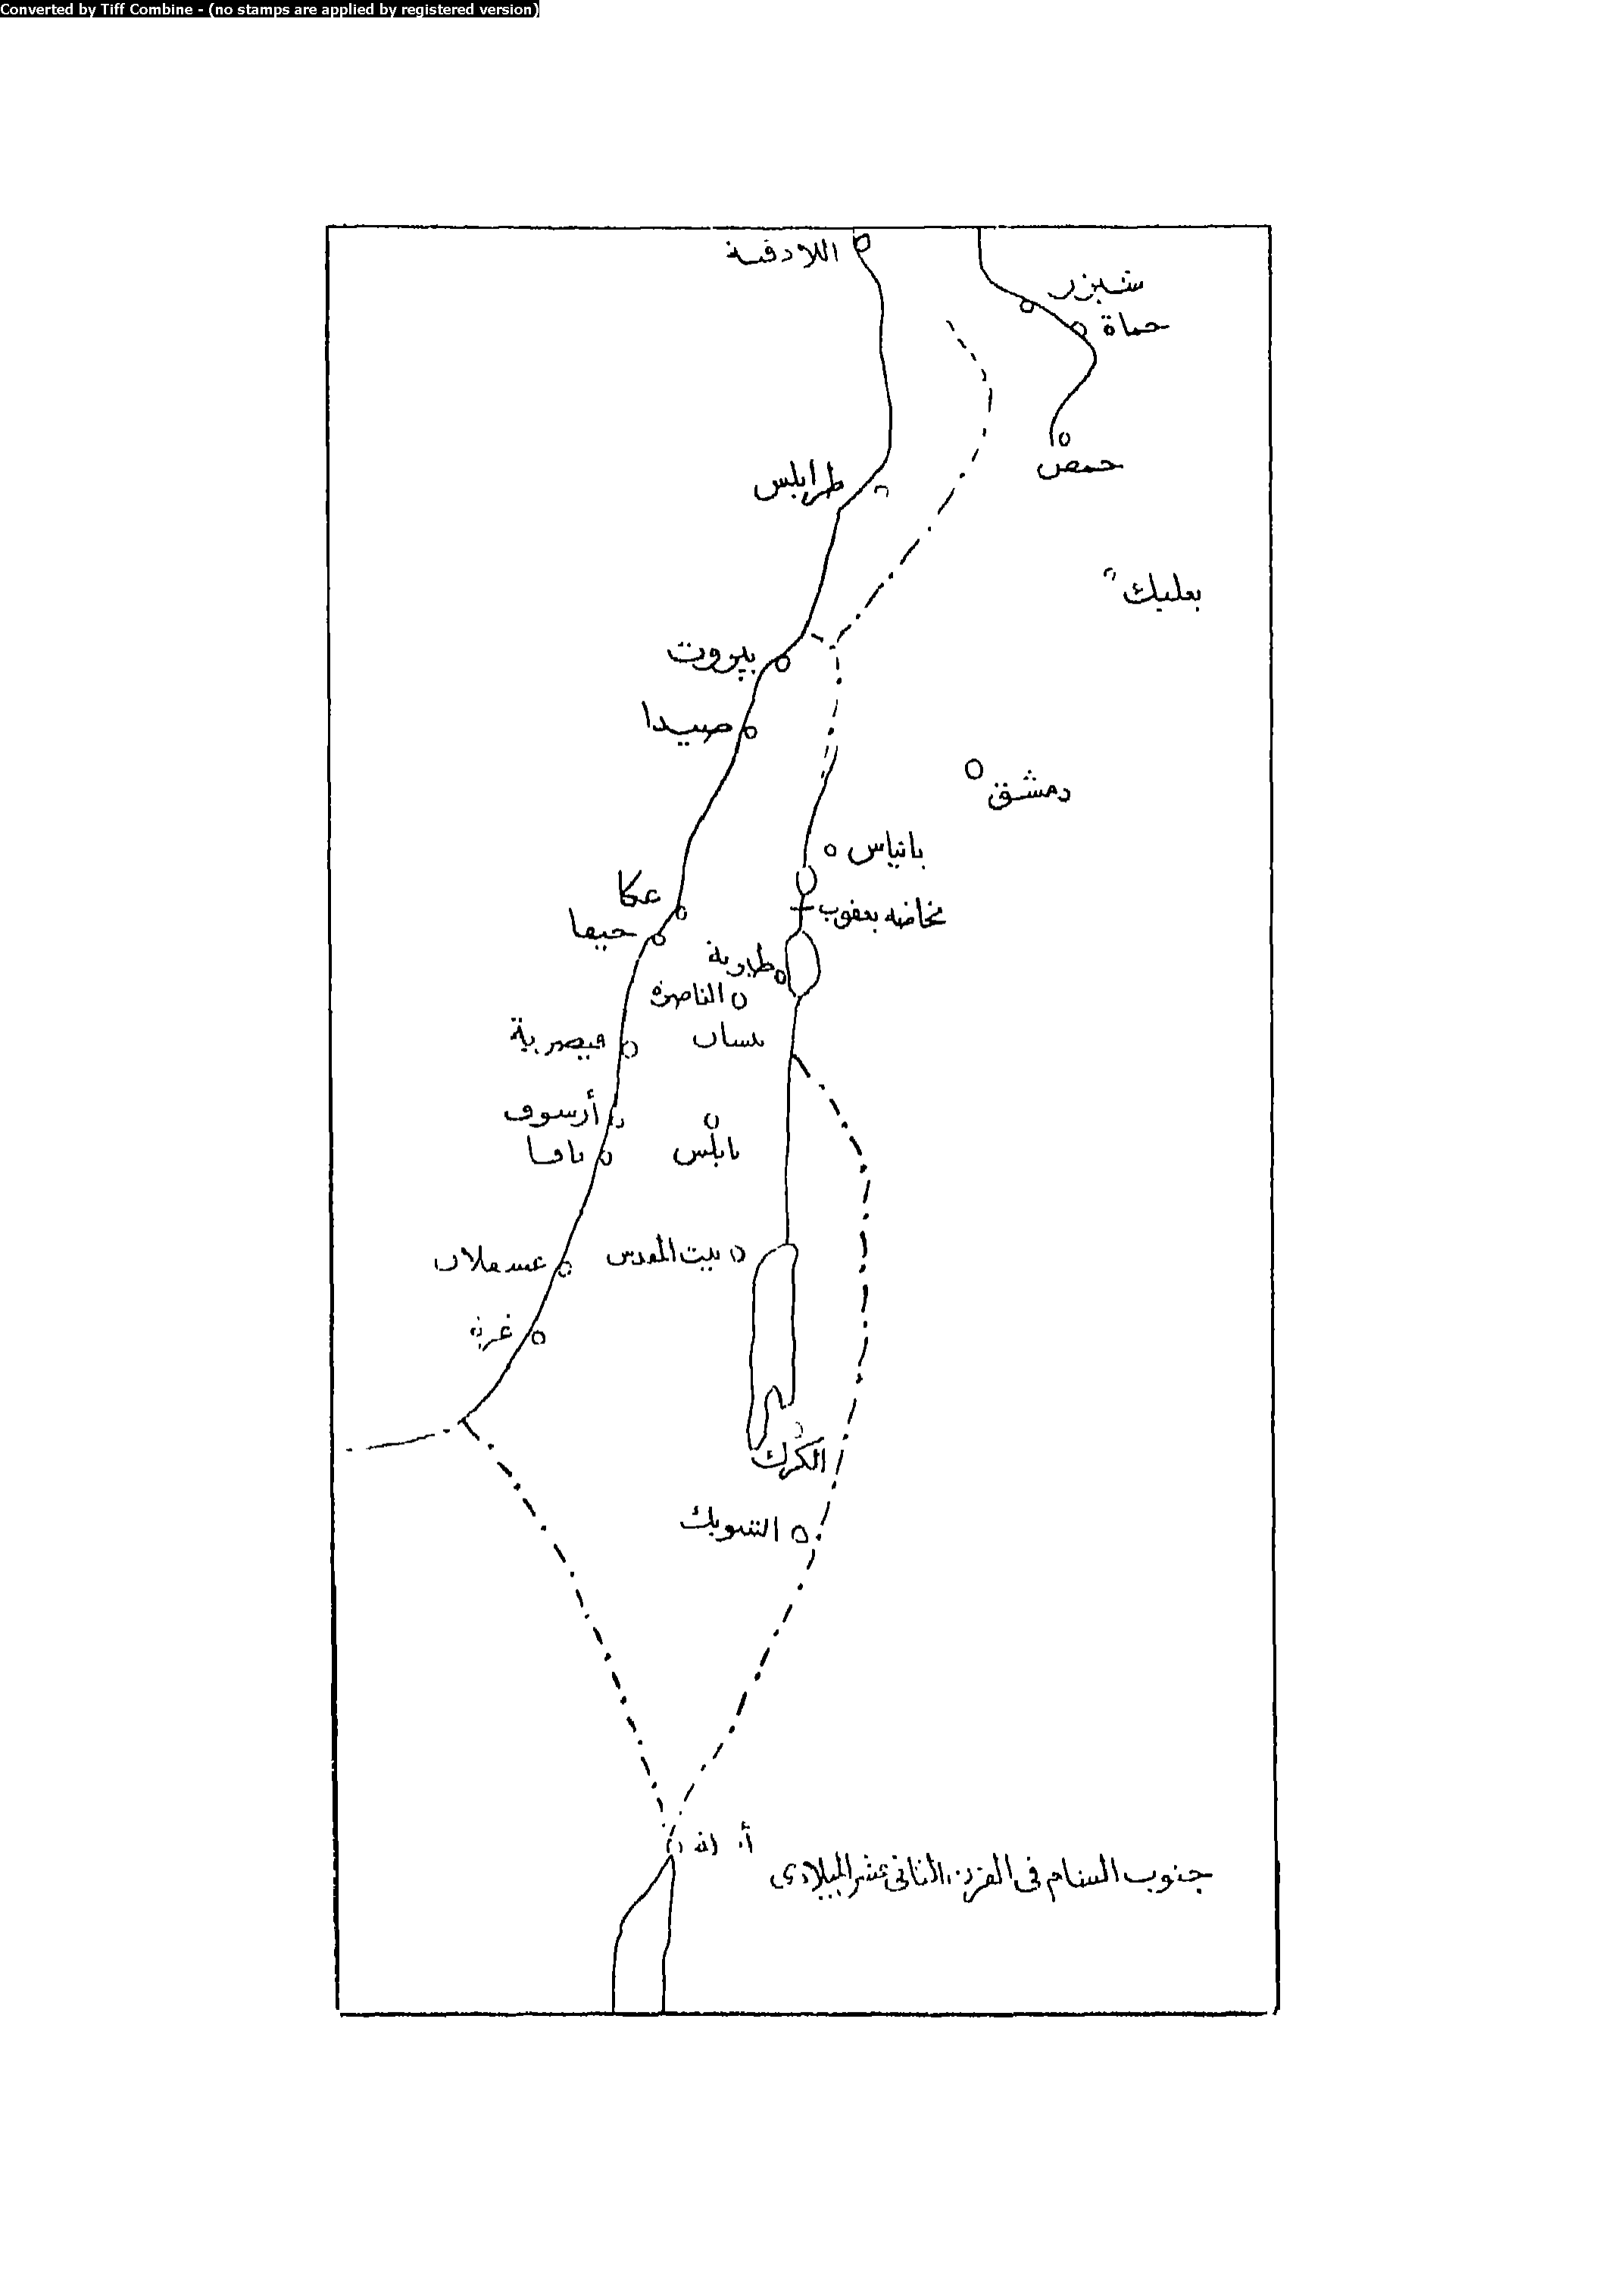 Converted by Tiff Combine - (no stamps are applied by registered version)
اللاذقية
شيزر
حماة
حمص
طرابلس
بعلبك
بيروت
صيدا
دمشق
بانياس
عكا
مخاضة يعقوب
حيفا
طبرية
الناصرة
قيصرية
بيسان
أرسوف
نابلس
يافا
بيت المقدس
عسقلان
غزة
الكرك
الشوبك
جنوب الشام فى القرن الثانى عشر الميلادى